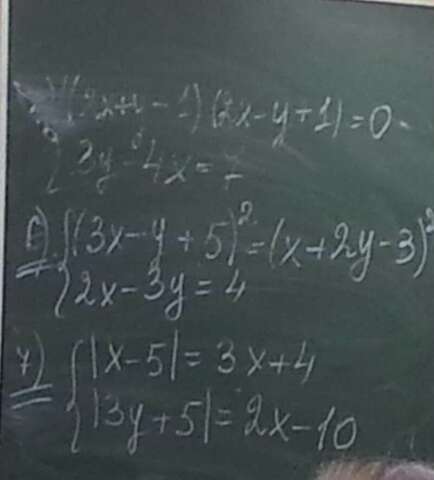 (2x-y+1)=0
3y-4x=
б) {(3x-y+5)²=(x+2y-3)²
2x-3y=4
7) {|x-5|=3x+4
|3y+5|=2x-10